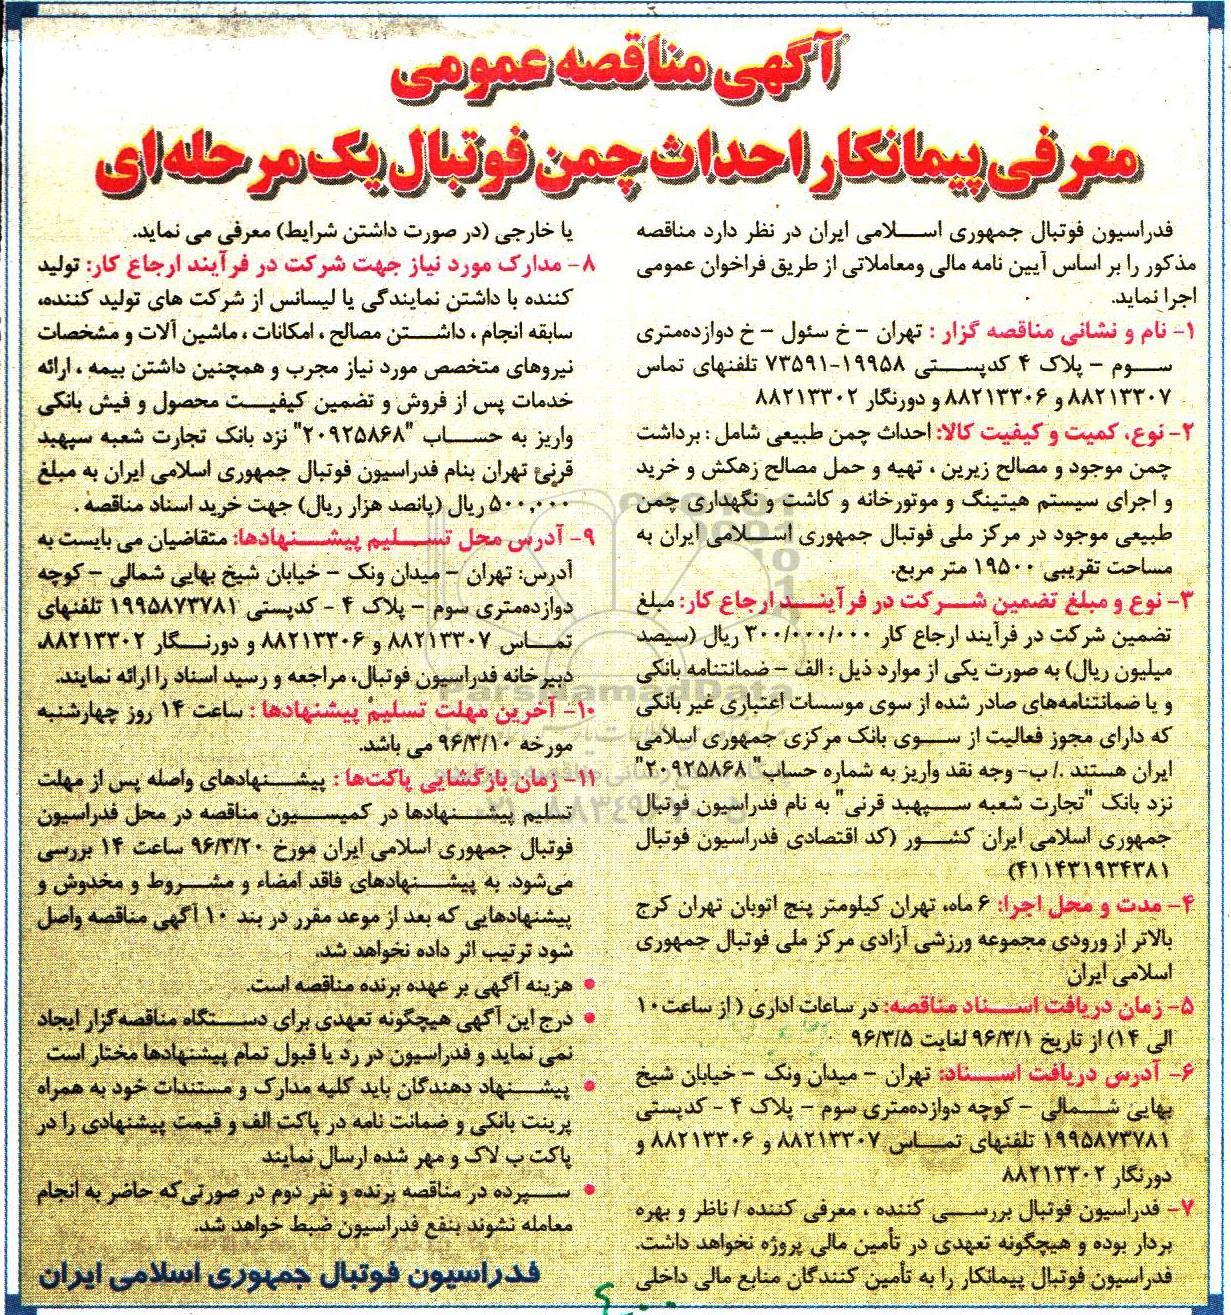 آگهی مناقصه عمومی
معرفی پیمانکار احداث چمن فوتبال یک مرحله‌ای
فدراسیون فوتبال جمهوری اسلامی ایران در نظر دارد مناقصه
مذکور را بر اساس آیین نامه مالی ومعاملاتی از طریق فراخوان عمومی
اجرا نماید.
۱- نام و نشانی مناقصه گزار : تهران - خ سئول - خ دوازده‌متری
سوم - پلاک ۴ کدپستی ۱۹۹۵۸-۷۳۵۹۱ تلفنهای تماس
۸۸۲۱۳۳۰۷ و ۸۸۲۱۳۳۰۶ و دورنگار ۸۸۲۱۳۳۰۲
۲- نوع، کمیت و کیفیت کالا: احداث چمن طبیعی شامل : برداشت
چمن موجود و مصالح زیرین ، تهیه و حمل مصالح زهکش و خرید
و اجرای سیستم هیتینگ و موتورخانه و کاشت و نگهداری چمن
طبیعی موجود در مرکز ملی فوتبال جمهوری اسلامی ایران به
مساحت تقریبی ۱۹۵۰۰ متر مربع.
۳- نوع و مبلغ تضمین شرکت در فرآیند ارجاع کار: مبلغ
تضمین شرکت در فرآیند ارجاع کار ۳۰۰/۰۰۰/۰۰۰ ریال (سیصد
میلیون ریال) به صورت یکی از موارد ذیل : الف - ضمانتنامه بانکی
و یا ضمانتنامه‌های صادر شده از سوی موسسات اعتباری غیر بانکی
که دارای مجوز فعالیت از سوی بانک مرکزی جمهوری اسلامی
ایران هستند ./ ب- وجه نقد واریز به شماره حساب" ۲۰۹۲۵۸۶۸"
نزد بانک "تجارت شعبه سپهبد قرنی" به نام فدراسیون فوتبال
جمهوری اسلامی ایران کشور (کد اقتصادی فدراسیون فوتبال
۴۱۱۴۳۱۹۳۴۳۸۱)
۴- مدت و محل اجرا: ۶ ماه، تهران کیلومتر پنج اتوبان تهران کرج
بالاتر از ورودی مجموعه ورزشی آزادی مرکز ملی فوتبال جمهوری
اسلامی ایران
۵- زمان دریافت اسناد مناقصه: در ساعات اداری ( از ساعت ۱۰
الی ۱۴) از تاریخ ۹۶/۳/۱ لغایت ۹۶/۳/۵
۶- آدرس دریافت اسناد: تهران - میدان ونک - خیابان شیخ
بهایی شمالی - کوچه دوازده‌متری سوم - پلاک ۴ - کدپستی
۱۹۹۵۸۷۳۷۸۱ تلفنهای تماس ۸۸۲۱۳۳۰۷ و ۸۸۲۱۳۳۰۶ و
دورنگار ۸۸۲۱۳۳۰۲
۷- فدراسیون فوتبال بررسی کننده ، معرفی کننده / ناظر و بهره
بردار بوده و هیچگونه تعهدی در تأمین مالی پروژه نخواهد داشت.
فدراسیون فوتبال پیمانکار را به تأمین کنندگان منابع مالی داخلی
یا خارجی (در صورت داشتن شرایط) معرفی می نماید.
۸- مدارک مورد نیاز جهت شرکت در فرآیند ارجاع کار: تولید
کننده با داشتن نمایندگی یا لیسانس از شرکت های تولید کننده،
سابقه انجام ، داشتن مصالح ، امکانات ، ماشین آلات و مشخصات
نیروهای متخصص مورد نیاز مجرب و همچنین داشتن بیمه ، ارائه
خدمات پس از فروش و تضمین کیفیت محصول و فیش بانکی
واریز به حساب "۲۰۹۲۵۸۶۸" نزد بانک تجارت شعبه سپهبد
قرنی تهران بنام فدراسیون فوتبال جمهوری اسلامی ایران به مبلغ
۵۰۰,۰۰۰ ریال (پانصد هزار ریال) جهت خرید اسناد مناقصه .
۹- آدرس محل تسلیم پیشنهادها: متقاضیان می بایست به
آدرس: تهران - میدان ونک - خیابان شیخ بهایی شمالی - کوچه
دوازده‌متری سوم - پلاک ۴ - کدپستی ۱۹۹۵۸۷۳۷۸۱ تلفنهای
تماس ۸۸۲۱۳۳۰۷ و ۸۸۲۱۳۳۰۶ و دورنگار ۸۸۲۱۳۳۰۲،
دبیرخانه فدراسیون فوتبال، مراجعه و رسید اسناد را ارائه نمایند.
۱۰- آخرین مهلت تسلیم پیشنهادها : ساعت ۱۴ روز چهارشنبه
مورخه ۹۶/۳/۱۰ می باشد.
۱۱- زمان بازگشایی پاکت‌ها : پیشنهادهای واصله پس از مهلت
تسلیم پیشنهادها در کمیسیون مناقصه در محل فدراسیون
فوتبال جمهوری اسلامی ایران مورخ ۹۶/۳/۲۰ ساعت ۱۴ بررسی
می‌شود. به پیشنهادهای فاقد امضاء و مشروط و مخدوش و
پیشنهادهایی که بعد از موعد مقرر در بند ۱۰ آگهی مناقصه واصل
شود ترتیب اثر داده نخواهد شد.
• هزینه آگهی بر عهده برنده مناقصه است.
• درج این آگهی هیچگونه تعهدی برای دستگاه مناقصه‌گزار ایجاد
نمی نماید و فدراسیون در رد یا قبول تمام پیشنهادها مختار است
• پیشنهاد دهندگان باید کلیه مدارک و مستندات خود به همراه
پرینت بانکی و ضمانت نامه در پاکت الف و قیمت پیشنهادی را در
پاکت ب لاک و مهر شده ارسال نمایند
• سپرده در مناقصه برنده و نفر دوم در صورتی‌که حاضر به انجام
معامله نشوند بنفع فدراسیون ضبط خواهد شد.
فدراسیون فوتبال جمهوری اسلامی ایران
ParsNamadData